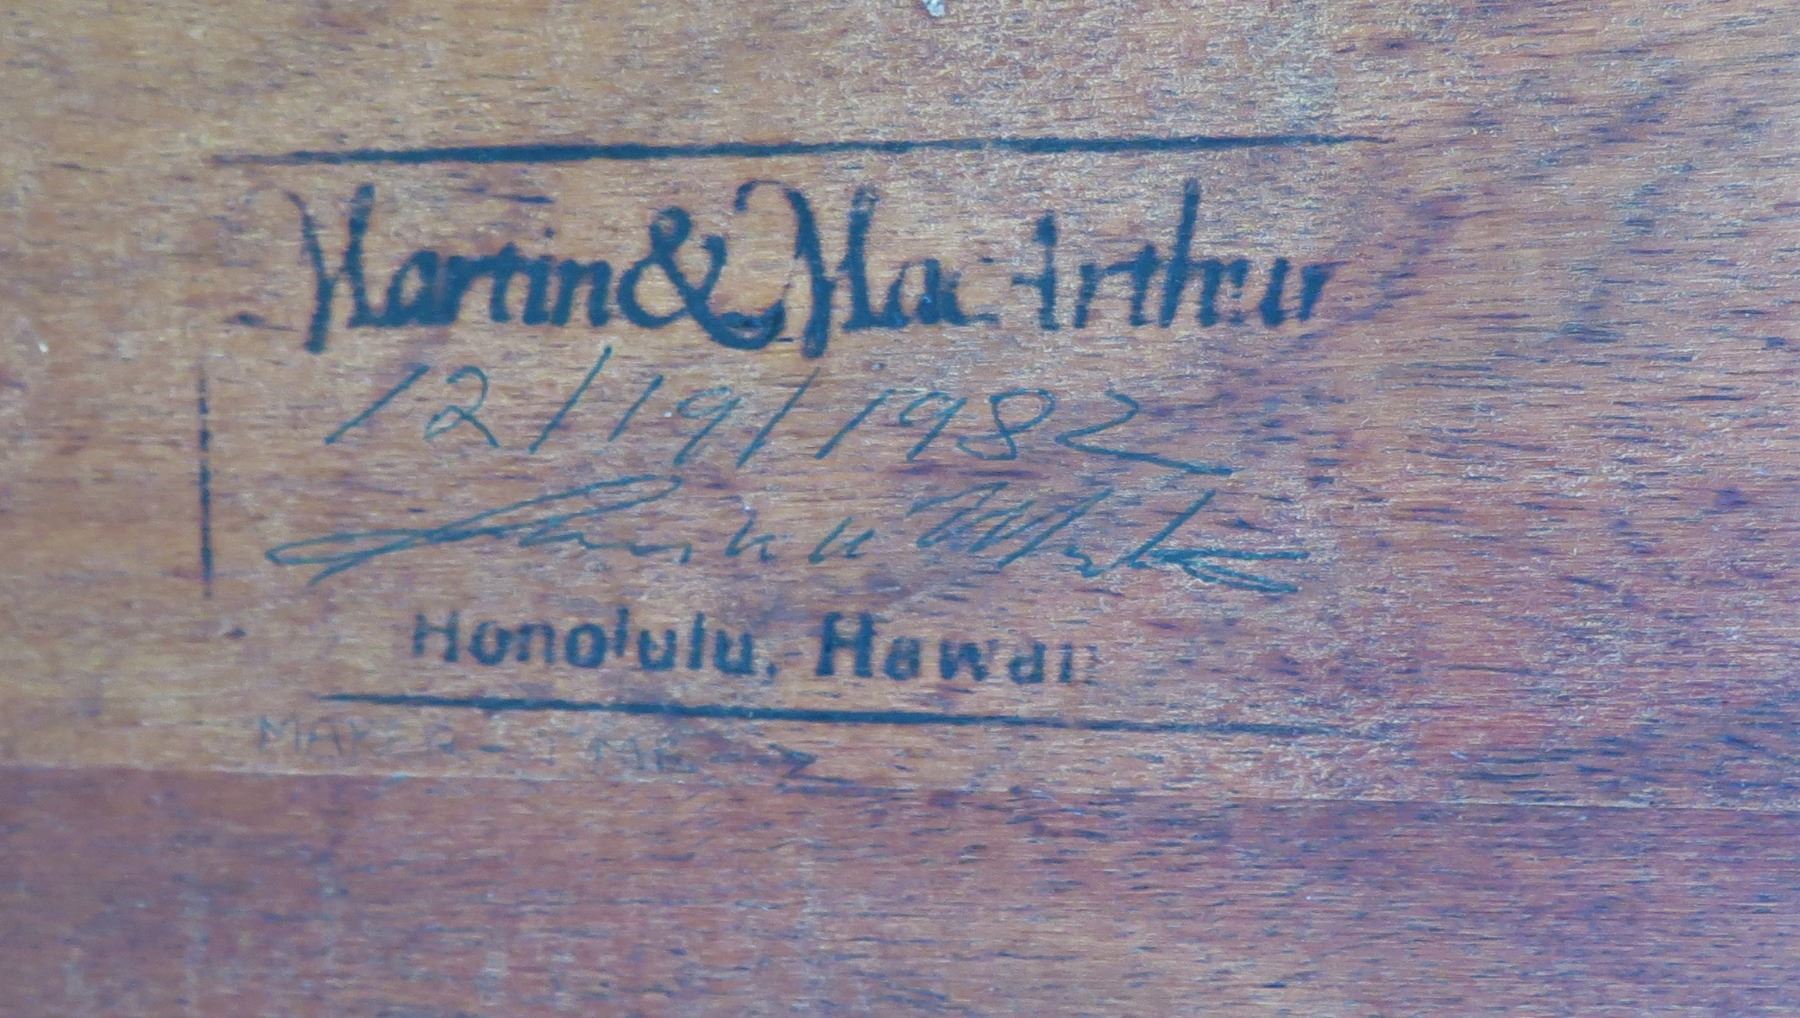 Martin & MacArthur
12/19/1982
Honolulu, Hawaii
MAKER -